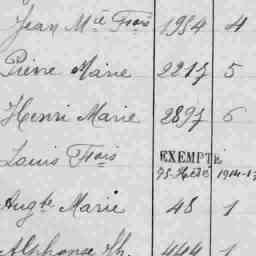 Jean Mie Frois 1954 4
Pierre Marie 2217 5
Henri Marie 2897 6
Louis Frois EXEMPTÉ
1914-1
Augte Marie 48 1
Alphonse Jh. 444 1